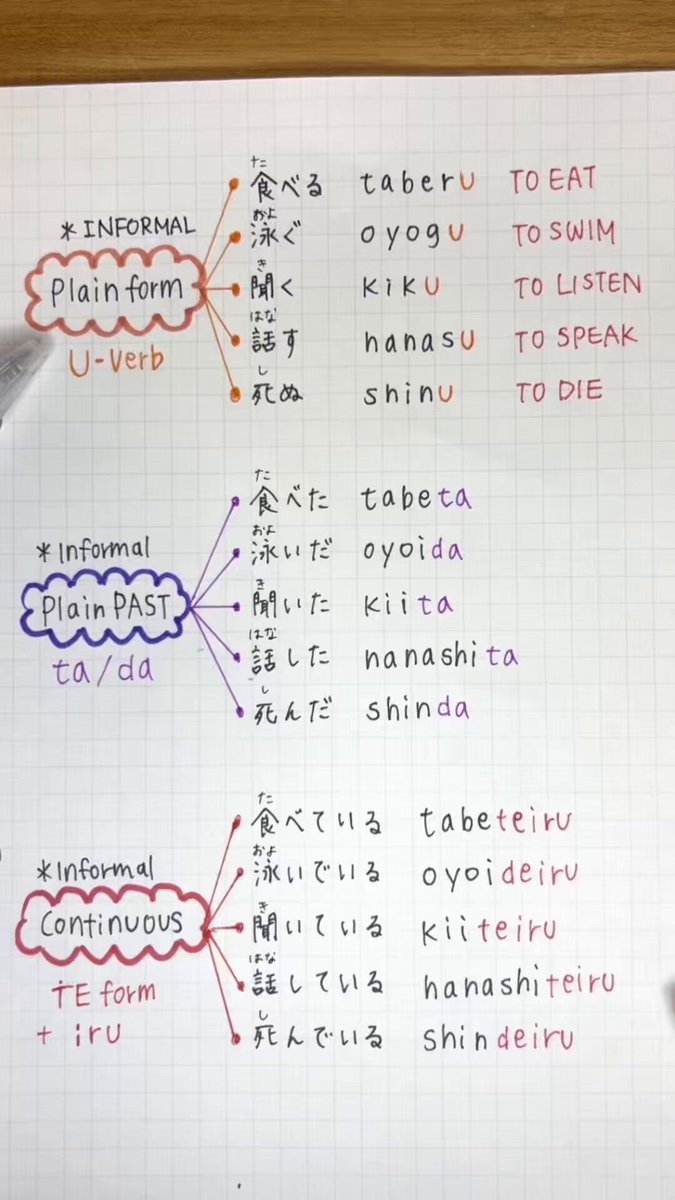 *INFORMAL
Plain form
U-verb
た
食べる taberu TO EAT
およ
泳ぐ oyogu TO SWIM
き
聞く kiku TO LISTEN
はな
話す hanasu TO SPEAK
し
死ぬ shinu TO DIE
*Informal
Plain PAST
ta/da
た
食べた tabeta
およ
泳いだ oyoida
き
聞いた kiita
はな
話した hanashita
し
死んだ shinda
*Informal
Continuous
TE form
+ iru
た
食べている tabeteiru
およ
泳いでいる oyoideiru
き
聞いている kiiteiru
はな
話している hanashiteiru
し
死んでいる shindeiru